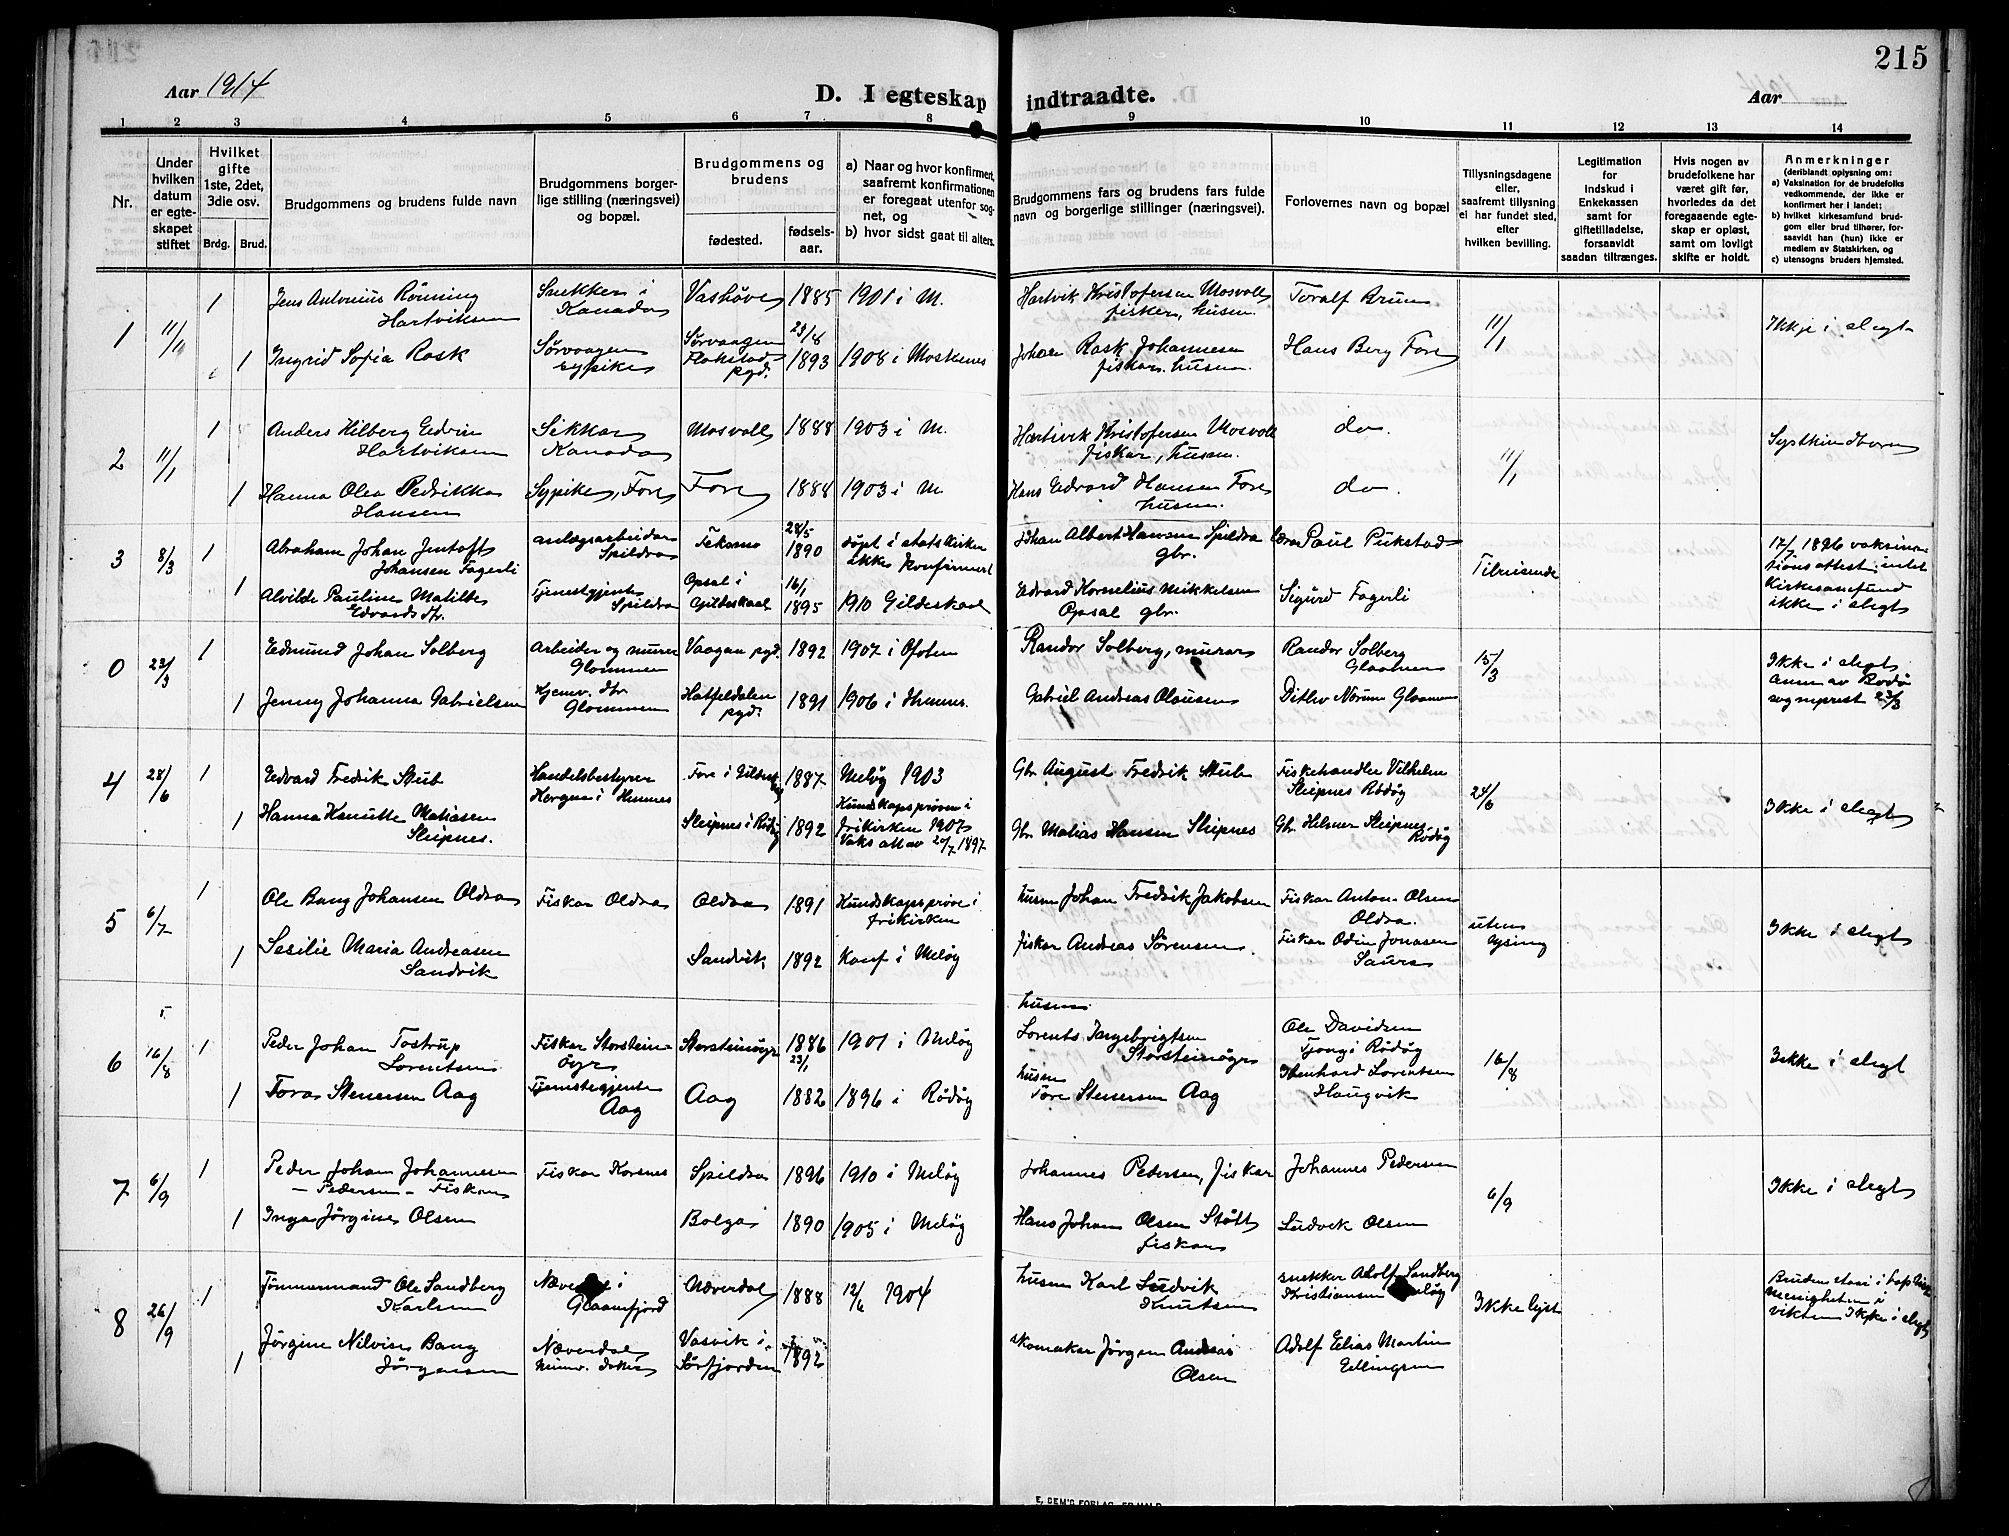 215
Aar 1914
D. I egteskap indtraadte.
Aar
1 2 3 4 5 6 7 8 9 10 11 12 13 14
Nr.
Under hvilken datum er egteskapet stiftet
Hvilket gifte 1ste, 2det, 3die osv.
Brdg. Brud.
Brudgommens og brudens fulde navn
Brudgommens borgerlige stilling (næringsvei) og bopæl.
Brudgommens og brudens
fødested. fødselsaar.
a) Naar og hvor konfirmert, saafremt konfirmationen er foregaat utenfor sognet, og
b) hvor sidst gaat til alters.
Brudgommens fars og brudens fars fulde navn og borgerlige stillinger (næringsvei).
Forlovernes navn og bopæl
Tillysningsdagene eller, saafremt tillysning ei har fundet sted, efter hvilken bevilling.
Legitimation for Indskud i Enkekassen samt for giftetilladelse, forsaavidt saadan tiltrænges.
Hvis nogen av brudefolkene har været gift før, hvorledes da det foregaaende egteskap er opløst, samt om lovligt skifte er holdt.
Anmerkninger
(deriblandt oplysning om:
a) Vaksination for de brudefolks vedkommende, der ikke er konfirmert her i landet;
b) hvilket kirkesamfund brudgom eller brud tilhører, forsaavidt han (hun) ikke er medlem av Statskirken, og
c) utensogns bruders hjemsted.
1 11/1 1 Jens Antonius Rönning Hartviksen Snekker i Kanada 1885 1901 i M. Hartvik Kristofersen Mosvoll fisker, husm. Toralf Brun 11/1 Ikkje i slegt
1 Ingrid Sofia Rask Sørvaagen Sørvaagen Flakstad pgd. 23/8 1893 1908 i Moskenes Johan Rask Johannesen fiskar. husm. Hans Berg Fore
2 11/1 1 Anders Hilberg Edvin Hartviksen Kanada Mosvoll 1888 1903 i M. Hartvik Kristofersen Mosvoll fiskar, husm. do. 11/1 Systkindborn
1 Hanna Olea Pedrikka Hansen Sypike, Fore Fore 1888 1903 i M Hans Edvard Hansen Fore husm. do.
3 8/3 1 Abraham Johan Jentoft Johansen Fagerli anlægsarbeidar Spildra 28/5 1890 döpt i statskirken ikke konfirmert Johan Albert Hansen Spildra gbr. Paul Pukstad 17/7 1896 vaksinationsattest. intet Kirkesamfund ikke i slegt
1 Alvilde Pauline Matilde Edvardsdtr. Tjenestgjente Spildra Opsal i Gildeskaal 16/1 1895 1910 Gildeskaal Edvard Kornelius Mikkelsen Opsal gbr. Sigurd Fagerli
0 23/3 1 Edmund Johan Solberg Arbeider og murer Glommen Vaagan pgd. 1892 1907 i Ofoten Randor Solberg, murar Randor Solberg Glaamen 15/3 Ikke i slegt anm av Bodö sogneprest 23/3
1 Jenny Johanna Gabrielsen Hjemv. dtr. Glommen Hatfjeldalen pgd. 1891 1906 i Hemnes. Gabriel Andreas Olausen Ditlev Norum Glaamen
4 28/6 1 Edvard Fredrik Stub Handelsbestyrer Fore i 1887 Meløy 1903 Gbr August Fredrik Stub Fiskehandler Vilhelm Sleipnes Rödöy 24/6 Ikke i slegt
1 Hanna Hanutte Matiasen Sleipnes. Sleipnes i Rödöy 1892 Kundskapsprøven i frikirken 1907 Vaks att av 20/7 1897 Gbr Matias Hansen Sleipnes Gbr Helmer Sleipnes Rödöy
5 6/7 1 Ole Bang Johansen Oldra Fiskar Oldra Oldra 1891 Kundskapsprøve i frikirken husm Johan Fredrik Jakobsen Fiskar Anton Olsen Oldra. uten lysing Ikke i slegt
1 Sesilie Maria Andreasen Sandvik Sandvik 1892 Konf i Meløy fiskar Andreas Sörensen Fiskar Odin Jonasen Saura
6 16/8 1 Peder Johan Tostrup Lorentsen Fiskar Storsteinöyr Storsteinöyr 1886 1901 i Meløy husm Lorents Ingebrigtsen Storsteinöyr Ole Davidsen Tjong i Rödöy 16/8 Ikke i slegt
1 Tora Stenersen Aag Tjenestegjente Aag Aag 23/1 1882 1896 i Rödöy husm Tore Stenersen Aag Lorentsen Haugvik
7 6/9 1 Peder Johan Johannesen – Pedersen – Fiskar Fiskar Korsnes Spildra 1896 1910 i Meløy Johannes Pedersen, fiskar Johannes Pedersen 6/9 Ikke i slegt
1 Inga Jørgine Olsen Bolga 1890 1905 i Meløy Hans Johan Olsen Støtt Fiskar Ludvik Olsen
8 26/9 1 Tömmermand Ole Sandberg Karlsen i Glaamfjord Næverdal 1888 12/6 1904 husm Karl Ludvik Knutsen snekker Adolf Sandberg Kristiansen Ikke lyst Bruden staar i baptist menigheten i Ikke i slegt
1 Jörgine Nilvine Bang Jörgensen Næverdal Vasvik i Sörfjorden 1892 skomakar Jörgen Andreas Olsen Adolf Elias Martin Ellingsen